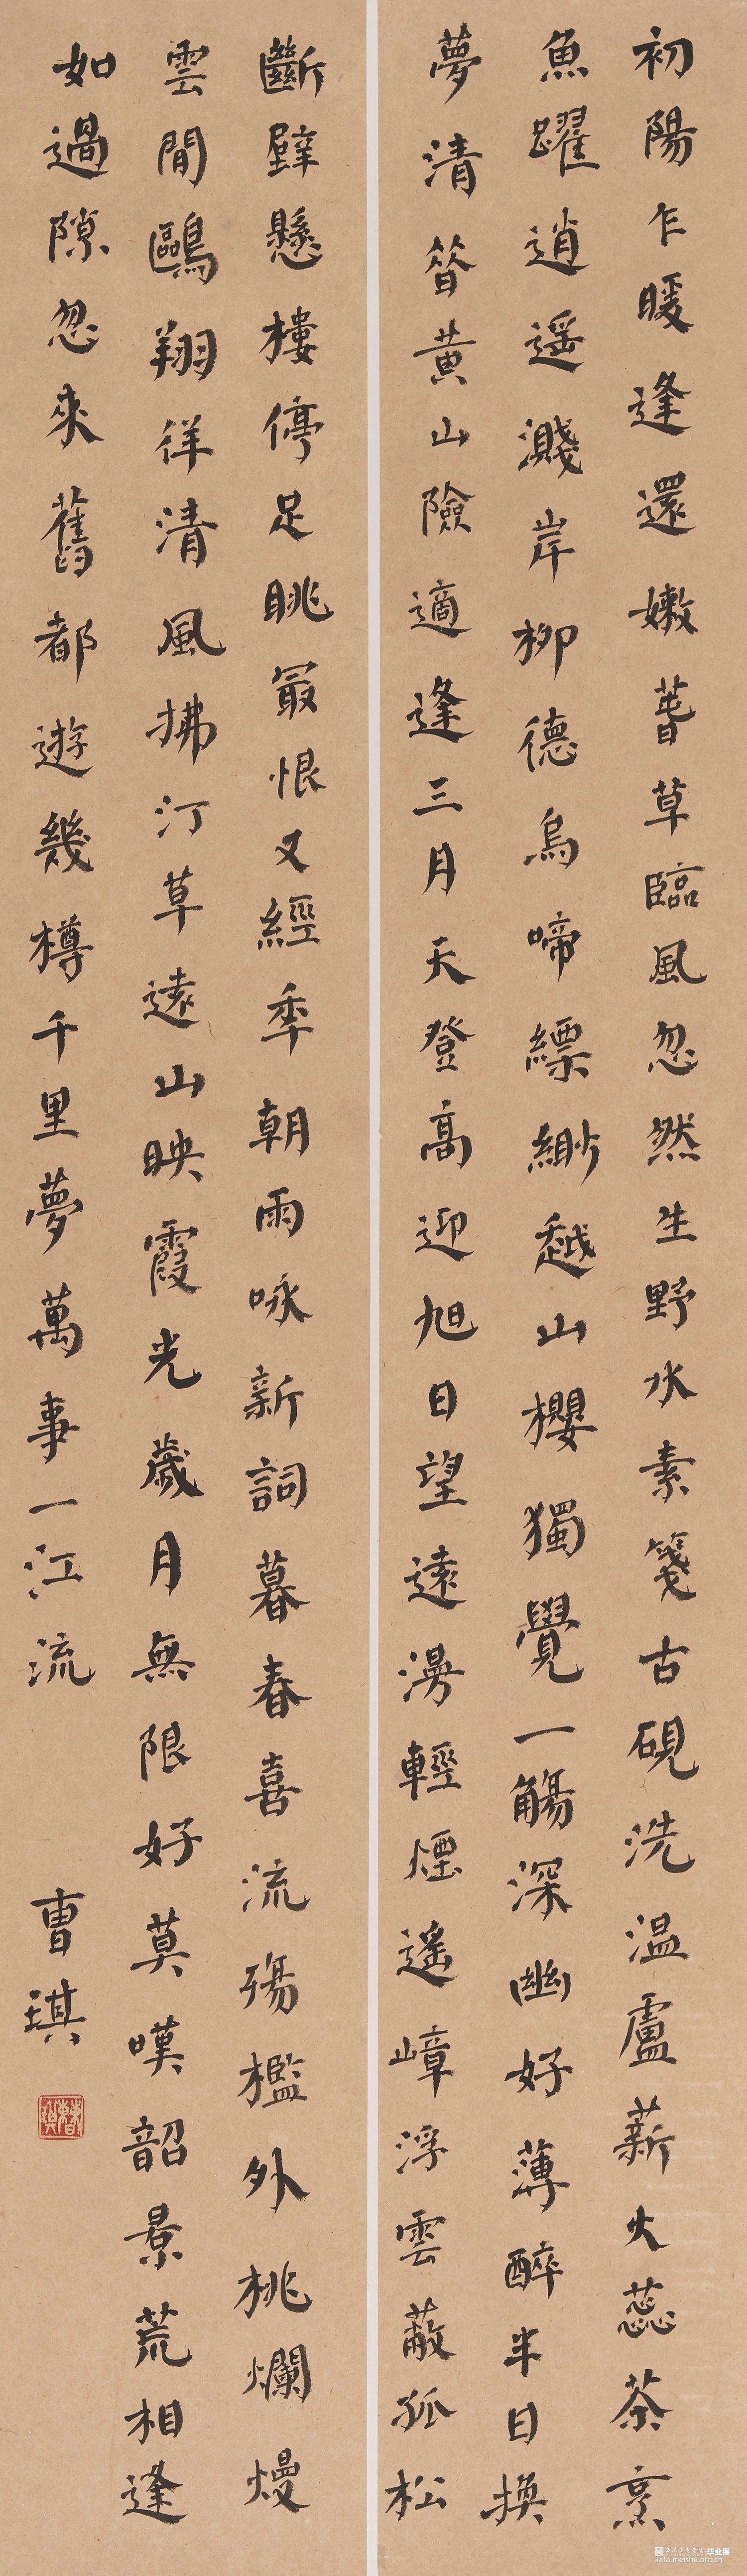 初陽乍暖逢還嫩蓍草臨風忽然生野水素箋古硯洗溫盧薪火蕊茶烹
魚躍逍遥濺岸柳德鳥啼縹緲越山櫻獨覺一觴深幽好薄醉半日換
夢清簪黃山險適逢三月天登高迎旭日望遠漫輕煙遥嶂浮雲蔽孤松
斷壁懸樓停足眺最恨又經年朝雨咏新詞暮春喜流殤檻外桃爛熳
雲閒鷗翔徉清風拂汀草遠山映霞光歲月無限好莫嘆韶景荒相逢
如過隙忽來舊都遊幾樽千里夢萬事一江流
曹琪
毕业展
xafa.meishu.org.cn